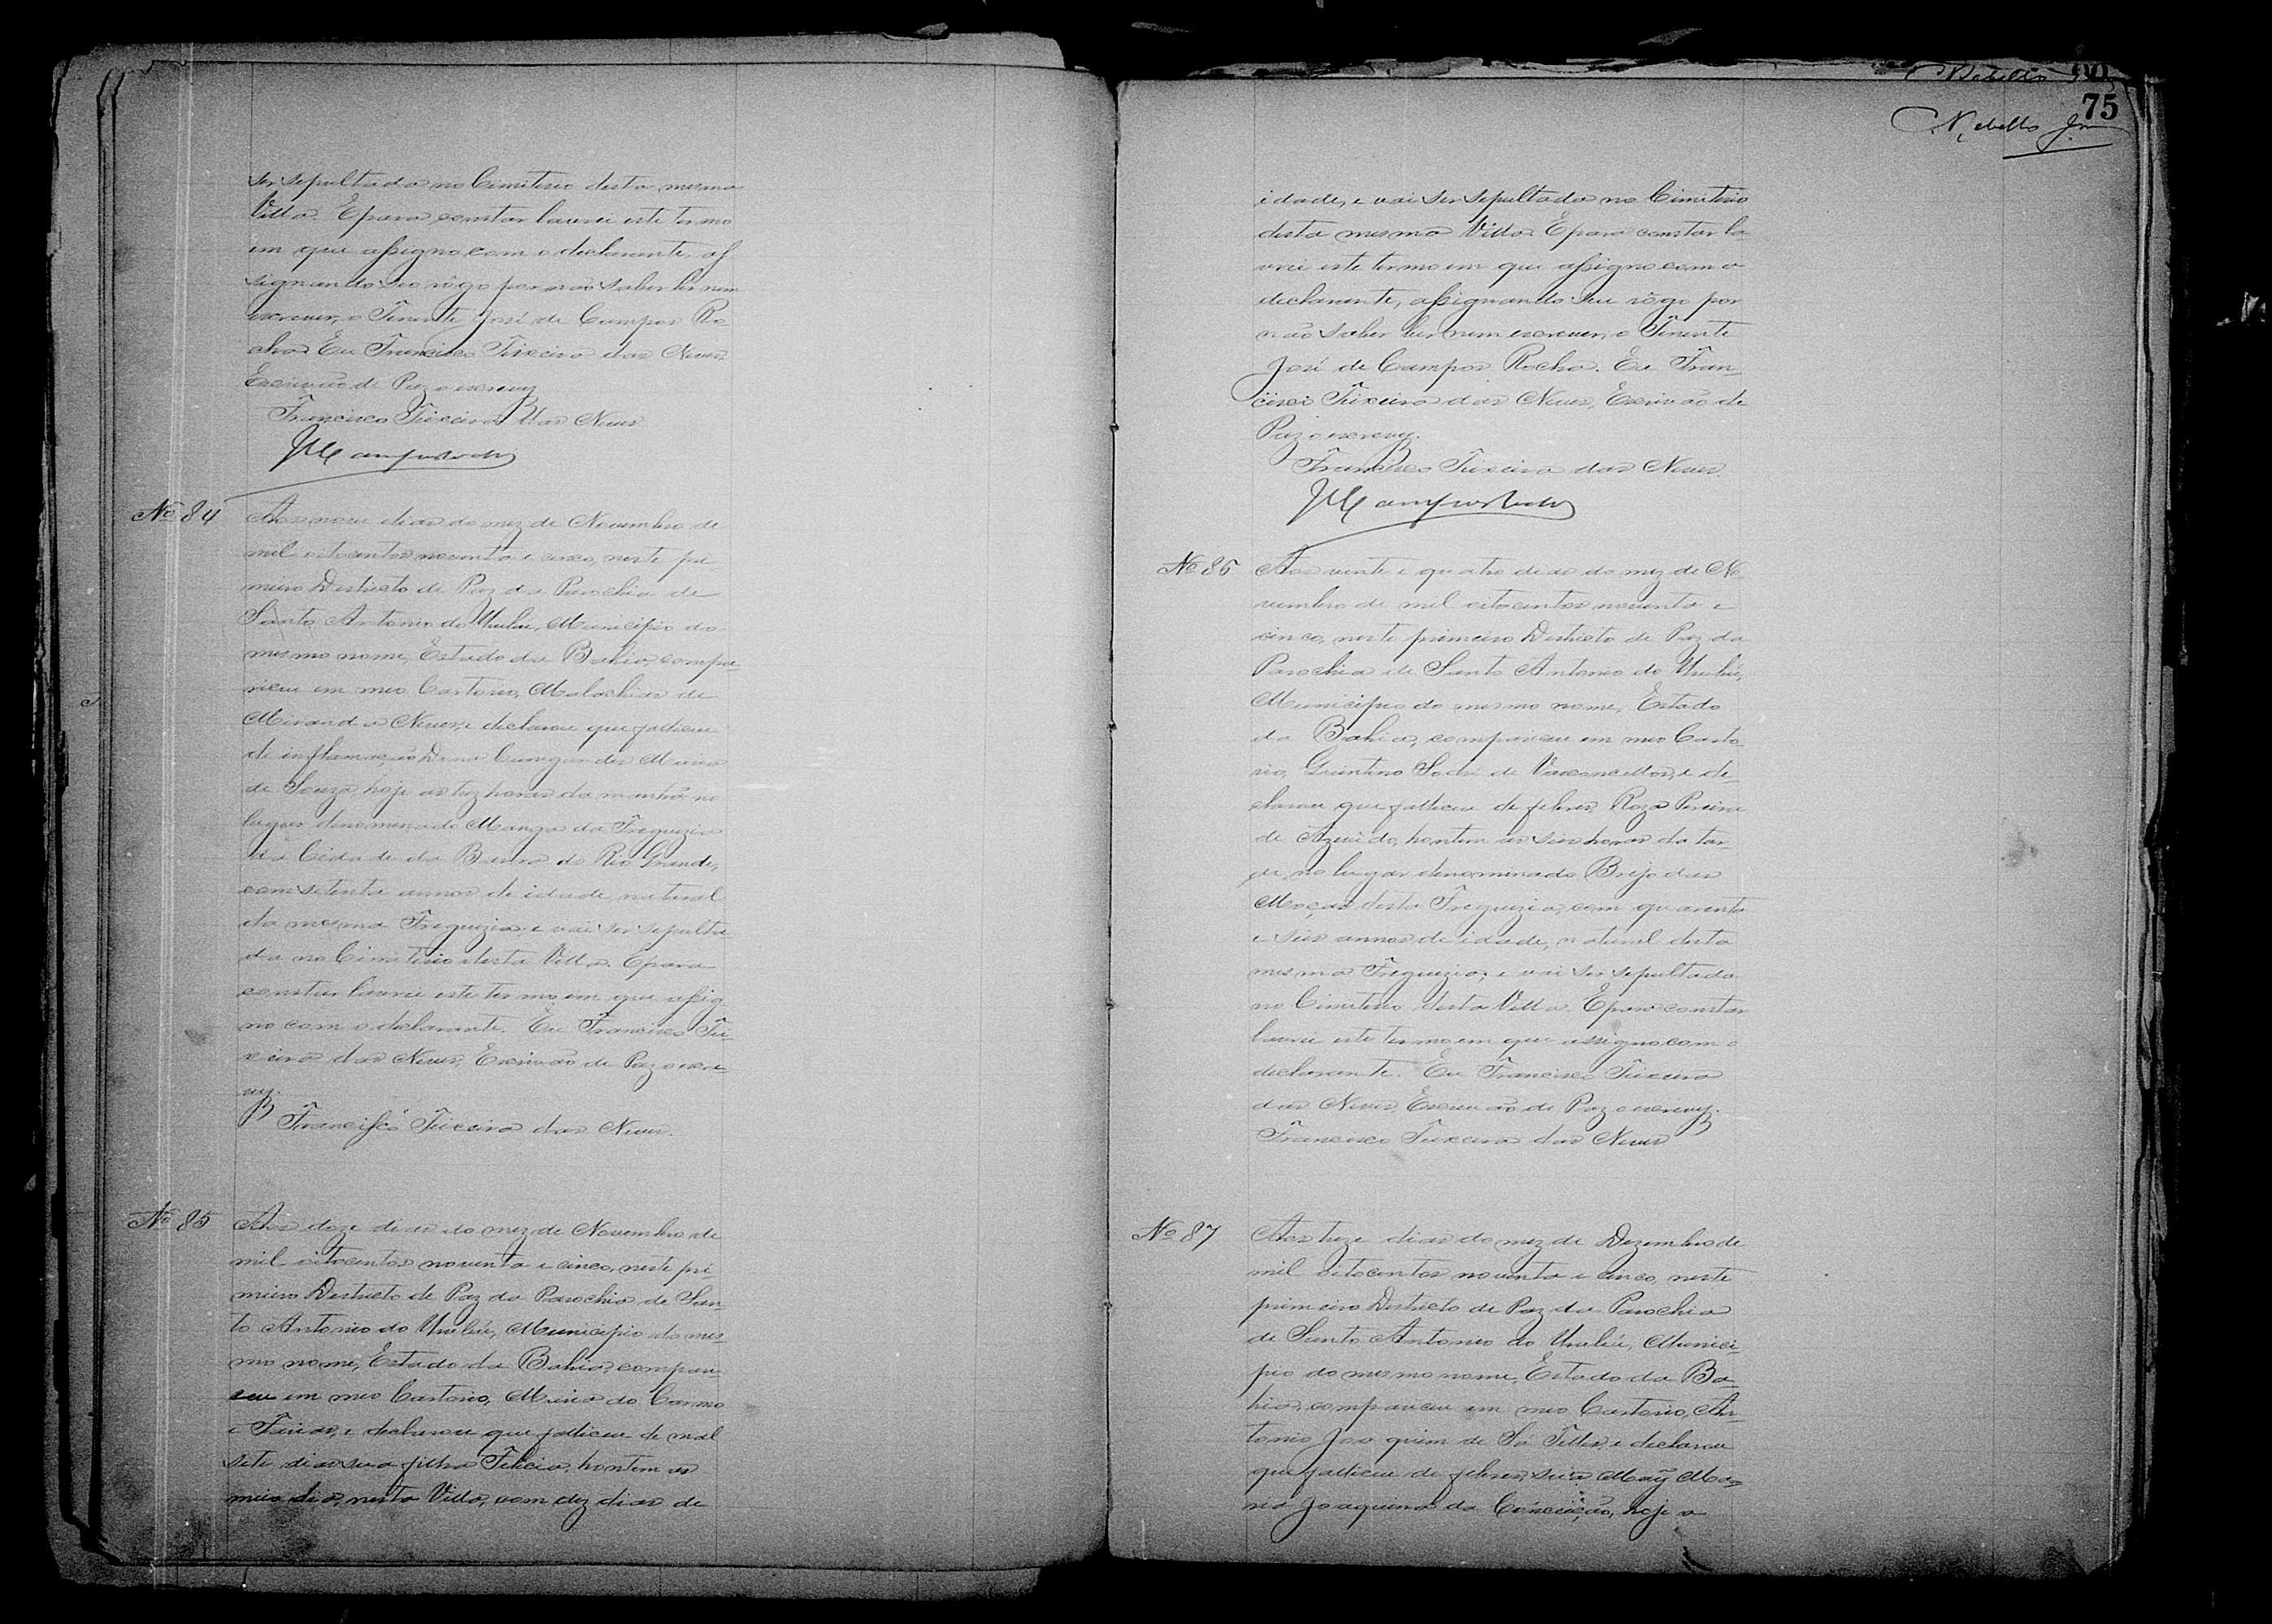 ser sepultada no Cimiterio desta mesma
Villa. E para constar lavrei este termo
em que assigno com o declarante, as
signando seo rôgo por não saber ler nem
escrever, o Tenente José de Campos Ro-
cha. Eu Francisco Teixeira das Neves
Escrivão de Paz o escrevy
Francisco Teixeira das Neves
JdeCamposRocha
Nº 84
Aos nove dias do mez de Novembro de
mil oitocentos noventa e cinco, neste pri-
meiro Districto de Paz da Parochia de
Santo Antonio do Urubú, Municipio do
mesmo nome, Estado da Bahia, compa-
receu em meo Cartorio, Malachias de
Miranda Neves, e declarou que falleceu
de inflamação Dona Cunegundes Maria
de Souza, hoje as trez horas da manhã no
lugar denominado Manga da Freguezia
da Cidade da Barra do Rio Grande,
com setenta annos de idade, natural
da mesma Freguezia, e vai ser sepulta
da no Cimiterio desta Villa. E para
constar lavrei este termo em que assig
no com o declarante. Eu Francisco Tei-
xeira das Neves, Escrivão de Paz o escre-
vy.
Francisco Teixeira das Neves.
Nº 85
Aos doze dias do mez de Novembro de
mil oitocentos noventa e cinco, neste pri-
meiro Districto de Paz da Parochia de San-
to Antonio do Urubú, Municipio do mes-
mo nome, Estado da Bahia, compare-
ceu em meo Cartorio, Maria do Carmo
e declarou que falleceu de mal
sete dias sua filha Felicia, hontem as
meio dia, nesta Villa, com dez dias de
75
Rebello Jor
idade, e vai ser sepultada no Cimiterio
desta mesma Villa. E para constar la-
vrei este termo em que assigno com o
declarante, assignando seu rôgo por
não saber ler nem escrever, o Tenente
José de Campos Rocha. Eu Fran-
cisco Teixeira das Neves, Escrivão de
Paz o escrevy.
Francisco Teixeira das Neves.
JdeCamposRocha
Nº 86
Aos vente e quatro dias do mez de No
vembro de mil oitocentos noventa e
cinco, neste primeiro Districto de Paz da
Parochia de Santo Antonio do Urubú,
Municipio do mesmo nome, Estado
da Bahia, compareceu em meo Carto
rio, Sodré de Vasconcellos, e de-
clarou que falleceu de febres, Roza Pereira
de Azevêdo, hontem as seis horas da tar-
de, no lugar denominado Brejo das
Moças desta Freguezia, com quarenta
e seis annos de idade, natural desta
mesma Freguezia, e vai ser sepultada
no Cimiterio desta Villa. E para constar
lavrei este termo em que assigno com o
declarante. Eu Francisco Teixeira
das Neves, Escrivão de Paz o escrevy.
Francisco Teixeira das Neves
Nº 87
Aos treze dias do mez de Dezembro de
mil oitocentos noventa e cinco, neste
primeiro Districto de Paz da Parochia
de Santo Antonio do Urubú, Munici-
pio do mesmo nome, Estado da Ba-
hia, compareceu em meo Cartorio, An-
tonio Joaquim de Sá Telles, e declarou
que falleceu de febres, sua Maÿ Ma-
ria Joaquina da Conceição, hoje a